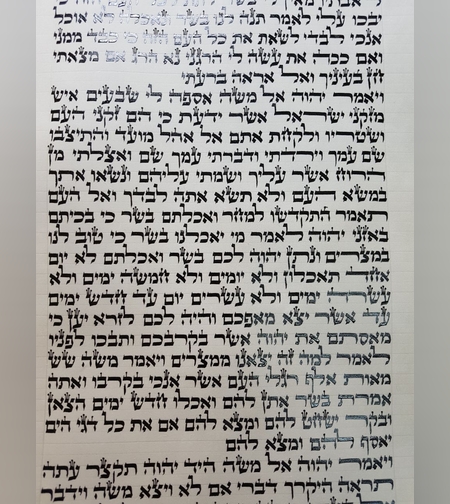 מאין לי בשר
יבכו עלי לאמר תנה לנו בשר ונאכלה לא אוכל
אנכי לבדי לשאת את כל העם הזה כי כבד ממני
ואם ככה את עשה לי הרגני נא הרג אם מצאתי
חן בעיניך ואל אראה ברעתי
ויאמר יהוה אל משה אספה לי שבעים איש
מזקני ישראל אשר ידעת כי הם זקני העם
ושטריו ולקחת אתם אל אהל מועד והתיצבו
שם עמך וירדתי ודברתי עמך שם ואצלתי מן
הרוח אשר עליך ושמתי עליהם ונשאו אתך
במשא העם ולא תשא אתה לבדך ואל העם
תאמר התקדשו למחר ואכלתם בשר כי בכיתם
באזני יהוה לאמר מי יאכלנו בשר כי טוב לנו
במצרים ונתן יהוה לכם בשר ואכלתם לא יום
אחד תאכלון ולא יומים ולא חמשה ימים ולא
עשרה ימים ולא עשרים יום עד חדש ימים
עד אשר יצא מאפכם והיה לכם לזרא יען כי
מאסתם את יהוה אשר בקרבכם ותבכו לפניו
לאמר למה זה יצאנו ממצרים ויאמר משה שש
מאות אלף רגלי העם אשר אנכי בקרבו ואתה
אמרת בשר אתן להם ואכלו חדש ימים הצאן
ובקר ישחט להם ומצא להם אם את כל דגי הים
יאסף להם ומצא להם
ויאמר יהוה אל משה היד יהוה תקצר עתה
תראה היקרך דברי אם לא ויצא משה וידבר